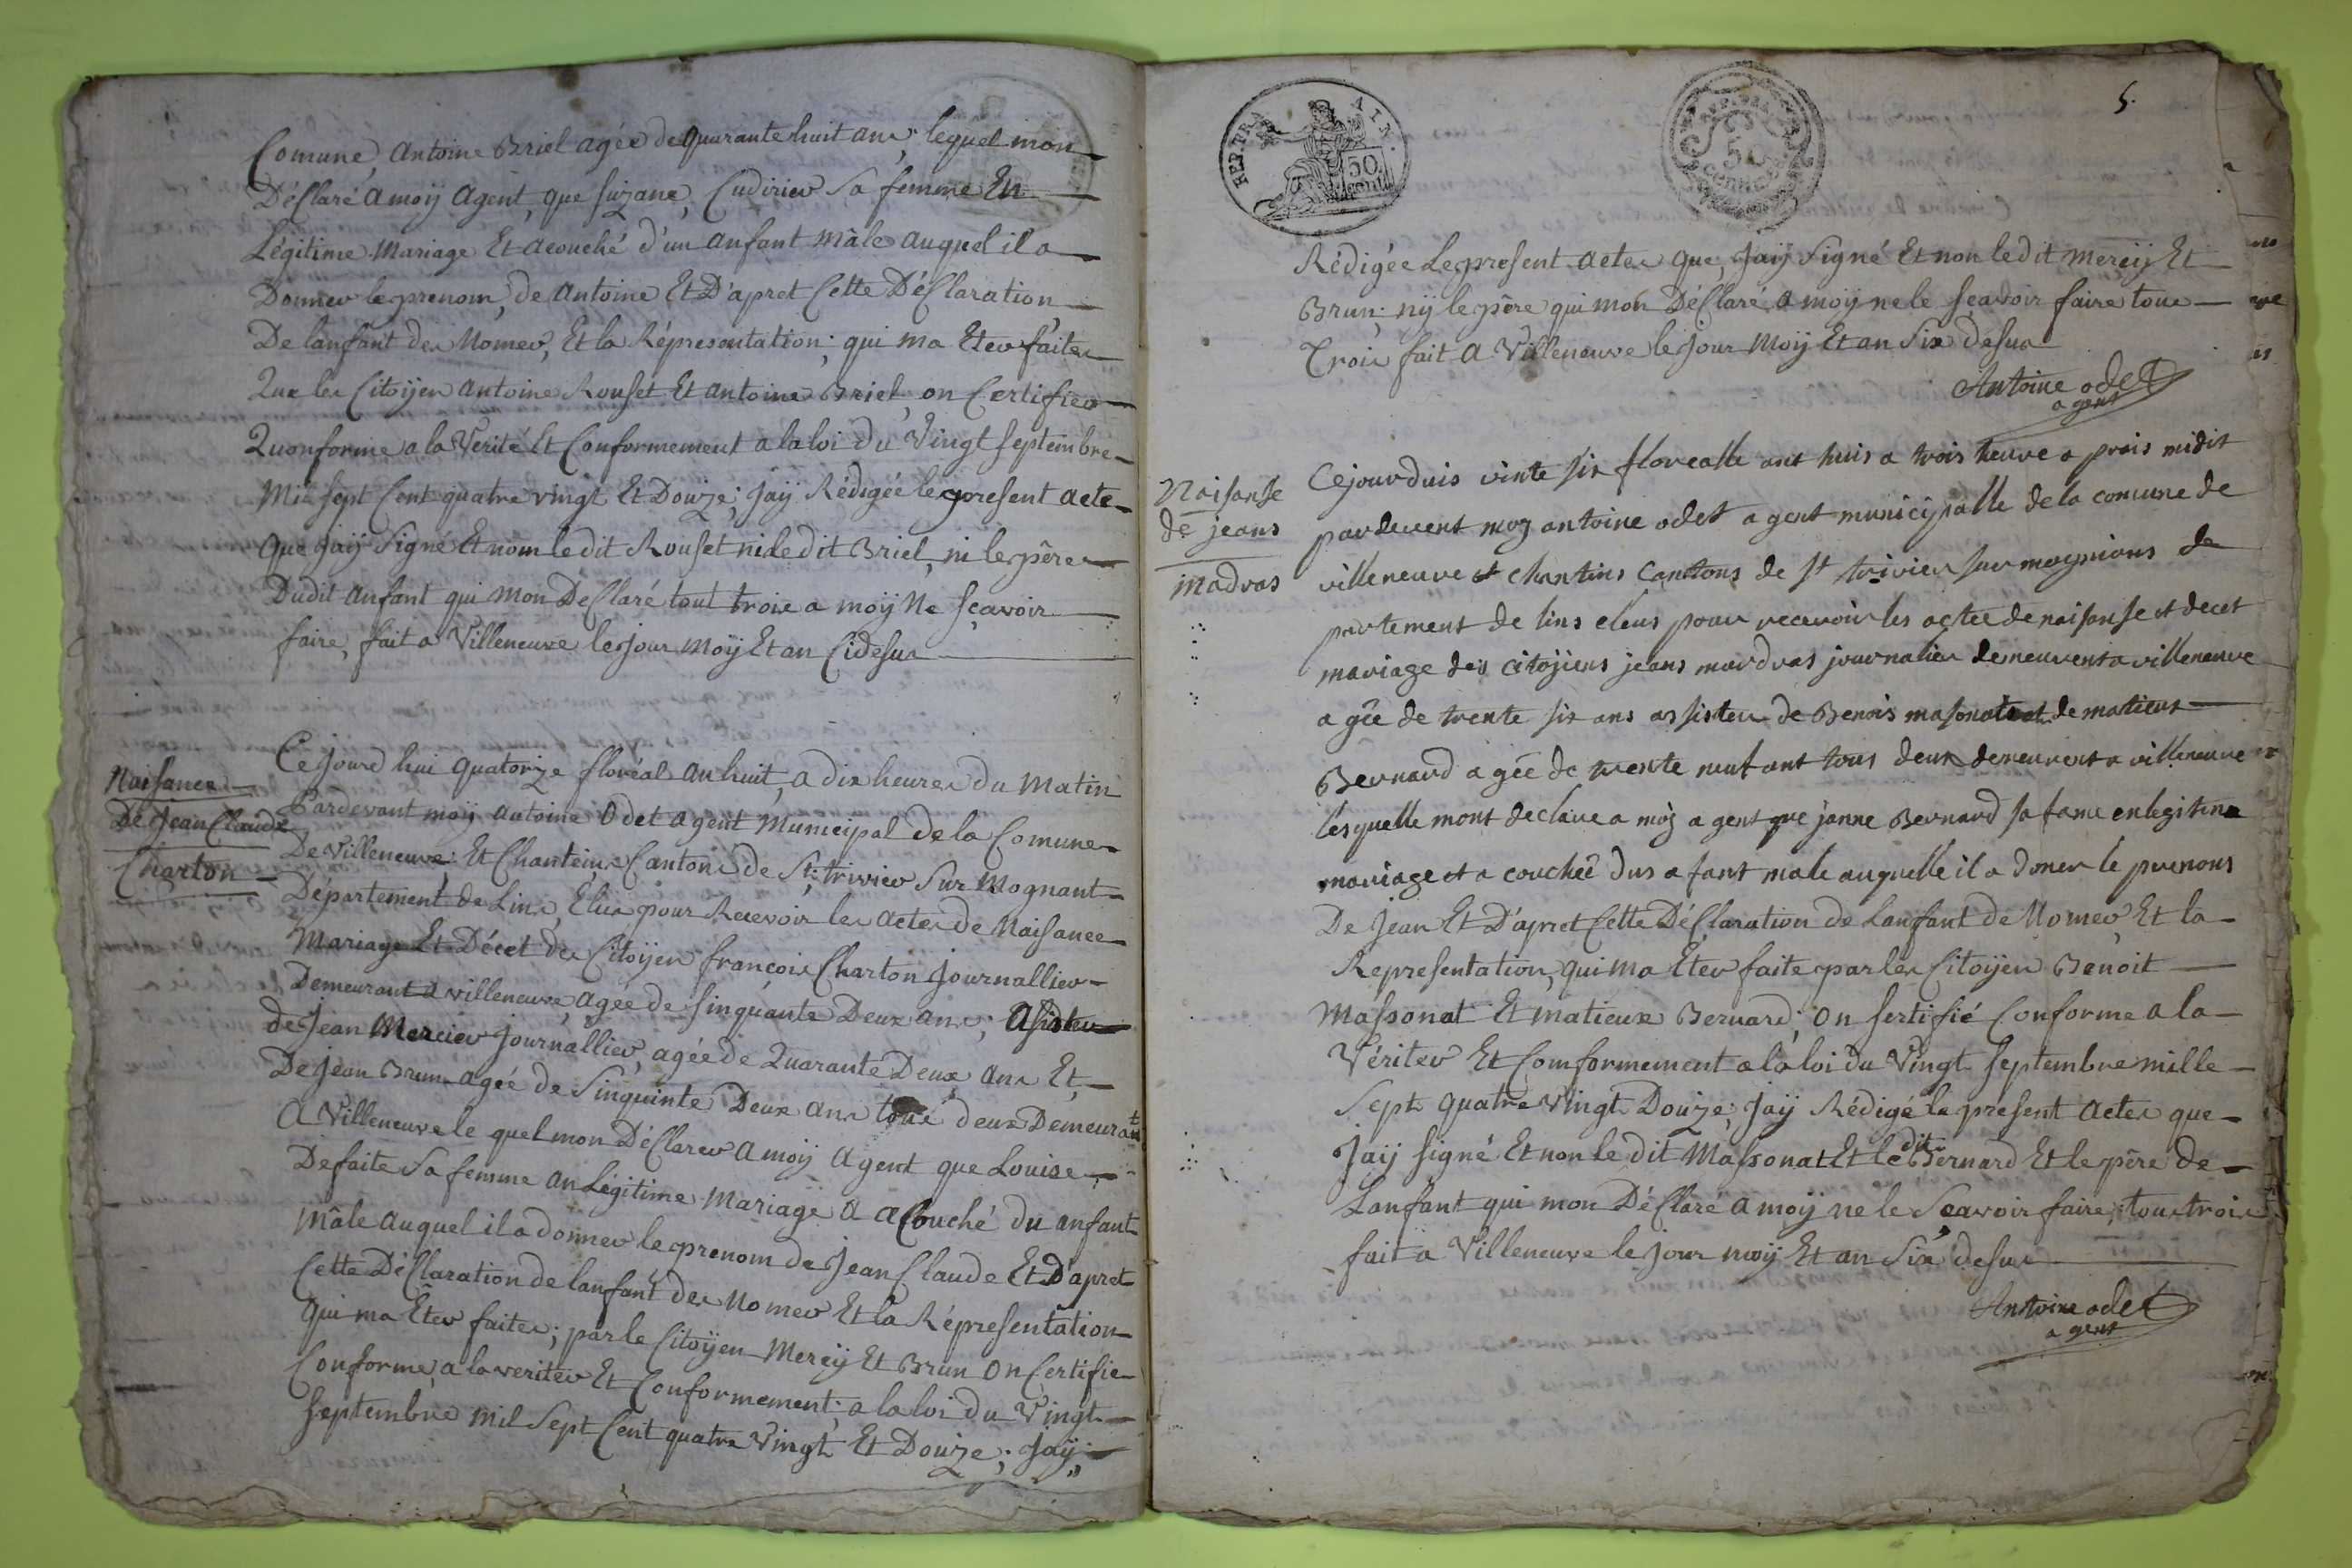 Comune, Antoine Briel agée de quarante huit anc; lequel mon
Déclaré a moÿ Agent, que Suzane, Cudirier Sa femme En
Légitime Mariage Et acouché d'un anfant mâle auquel il a
Donner le prenom, de Antoine Et D'apret Cette Déclaration
De lanfant der Nomer, Et la Répresentation; qui ma Eter faiter
Que ler Citoÿen Antoine Rouset Et Antoine Briel, on Certifier
Quonforme a la Verité Et Conformement a la loi du Vingt Septembre
Mil Sept Cent quatre vingt Et Douze; Jaÿ Rédigée le present acte
que jaÿ Signé Et nom le dit Rouset ni le dit Briel, ni le père
Dudit anfant qui mon Déclaré tout troie a moÿ Ne sçavoir
faire, fait a Villeneuve le jour Moÿ Et an Cidesue
Naisance
De Jean Claude
Charton
Ce jourd hui quatorze floréal an huit, a dix heurer du Matin
Pardevant moÿ Antoine Odet Agent Municipal de la Comune
De Villeneuve; Et Chanteinc Cantonc de St; trivier Sur Mognant
Département de Linc, Elue pour Recevoir ler Acter de Naisance
Mariage Et Décet der Citoÿen françoic Charton journallier
Demeurant a villeneuve, agée de Sinquante Deux anc; Asister
de Jean Mercier journallier, agée de Quarante Deux anc Et
De Jean Brun agée de Sinquinte Deux anc toue deux Demeurant
A Villeneuve le quel mon Déclarer a moÿ Agent que Louise
Defaite Sa femme an Légitime Mariage a acouché du anfant
Mâle auquel il a donner le prenom de Jean Claude Et D'apret
Cette Déclaration de lanfant der Nomer Et la Répresentation
qui ma Eter faiter; par le Citoÿen Mereÿ Et Brun on Certifie
Conforme, a la veriter Et Conformement; a la loi du Vingt
Septembre mil Sept Cent quatre Vingt Et Douze; Jaÿ;
REP. FRA. AIN.
50.
cent.
5.
Rédigée Le present acter que, Jaÿ Signé Et non le dit mereÿ Et
Brun; nÿ le père qui mon Déclaré a moÿ ne le sçavoir faire toue
Troie fait a Villeneuve le jour Moÿ Et an Six desue
Antoine odet
agent
Naisanse
de jeans
madras
Cejourduis vinte six florealle ant huis a trois heure a prais midit
pardevent moy antoine odet agent municipalle de la comune de
villeneuve et chantins Canttons de st trivier sur mognions de
partement de lins eleus pour recevoir les actee de naisanse et decet
mariage des citojiens jeans mardras journalier demeurent a villeneuve
agée de trente six ans assister de Benois masonat et de matieus
Bernard agée de trente neuf ant tous deux demeurent a villeneuve
lesquelle mont declare a moj agent que janne Bernard sa fame en legitime
mariage et a couchee dus afant male auquelle il a doner le prenons
De Jean Et D'apret Cette Déclaration de Lanfant de Nomer, Et la
Representation, qui ma Eter faite par ler Citoÿen Benoit
Massonat Et matieux Bernard; on sertifié Conforme a la
Vériter Et Comformement a la loi du Vingt Septembre mille
Sept quatre Vingt Douze; Jaÿ Rédigé le présent acter que
Jaÿ signé Et non le dit Massonat Et le dit Bernard Et le père de
Lanfant qui mon Déclaré a moÿ ne le Sçavoir faire; toue troie
fait a Villeneuve le jour moÿ Et an Six desue
Antoine odet
agent